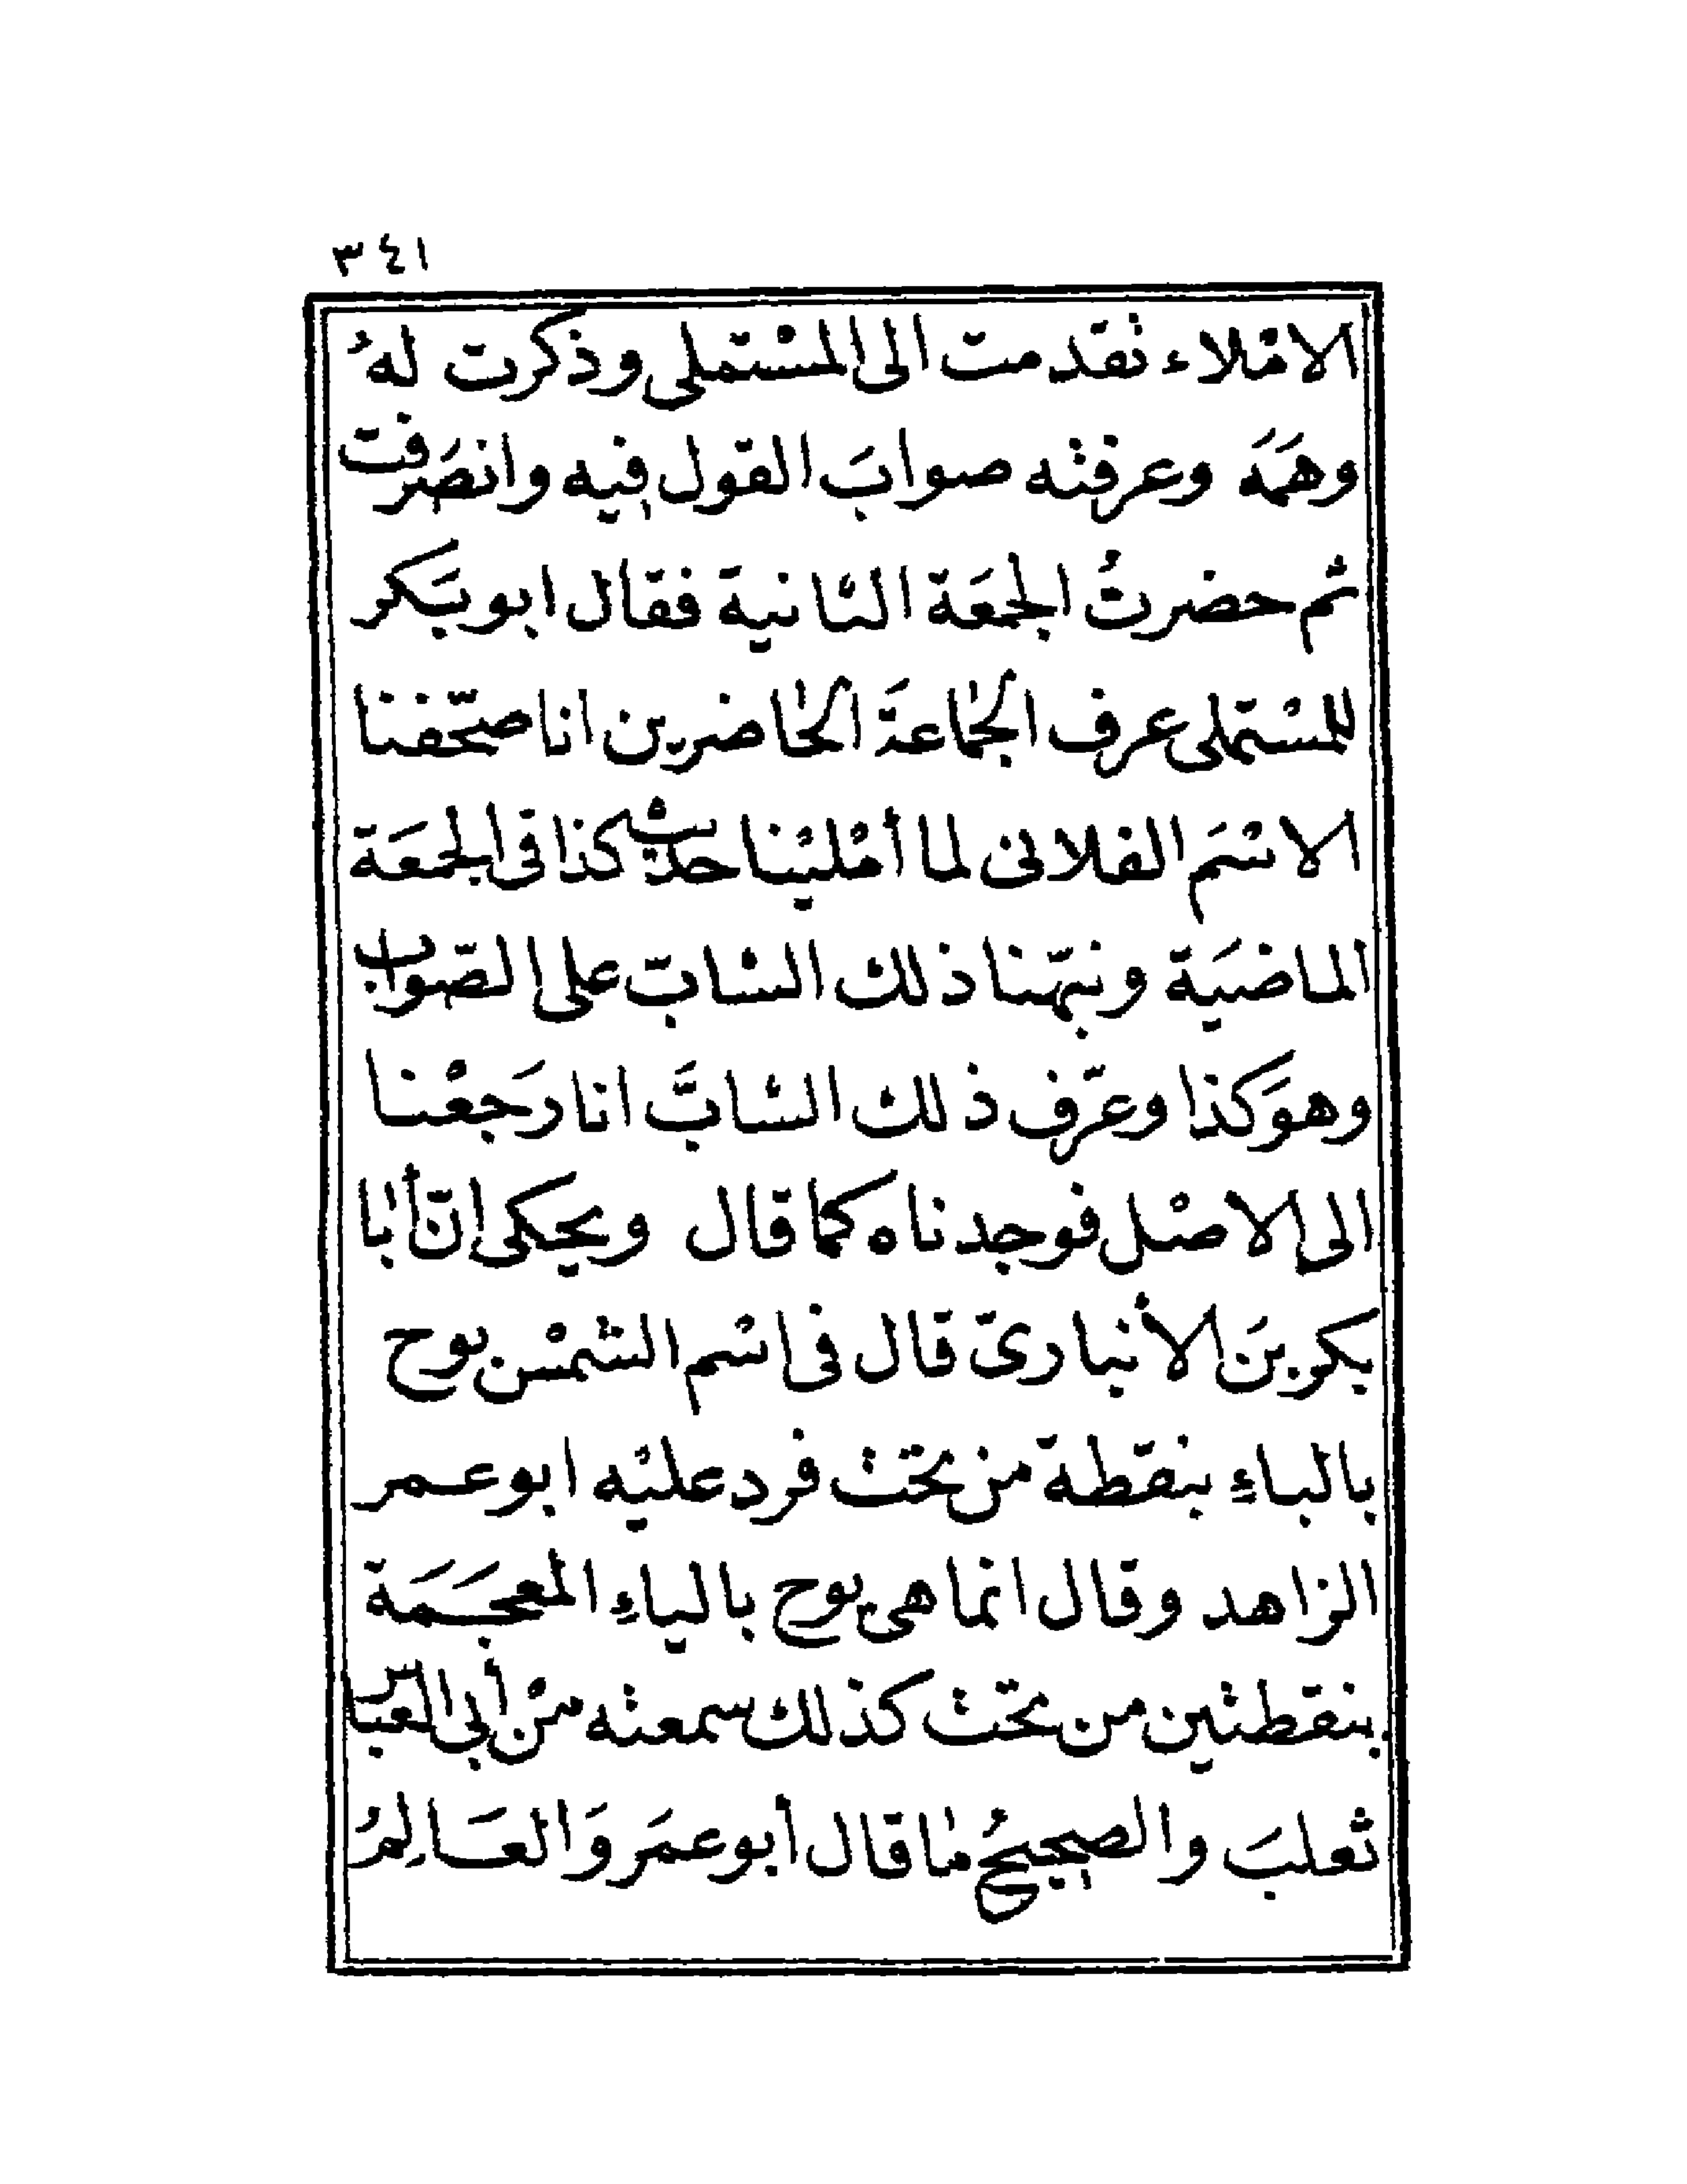 ٣٤١
الامْلاء تقدمت الى المسْتملى وذكرت لهُ
وهمَهَ وعرفته صوابَ القول فيه وانصَرفت
ثم حضرتُ الجمعَة الثانية فقال ابو بَكر
للمسْتملى عرف الجماعةَ الحاضرين انا صحّفنا
الاسْمَ الفلانى لما أمْليْنا حديث كذا فى الجمعَة
الماضيَة ونبّهنا ذلك الشابّ على الصّواب
وهوَ كذا وعرّف ذلك الشابَّ انا رَجعْنا
الى الاصْل فوجدناه كما قال ويحكى انّ أبا
بكر بنَ الأنبارىّ قال فى اسْم الشمْس بوح
بالباءِ بنقطة من تحت فرد عليْه ابو عمر
الزاهد وقال انما هى يوح بالياءِ المعجَمَة
بنقطتين من تحت كذلك سمعته منْ أبى العباس
ثعلبَ والصحيحُ ما قال أبو عمَر وَالعَالِمُ